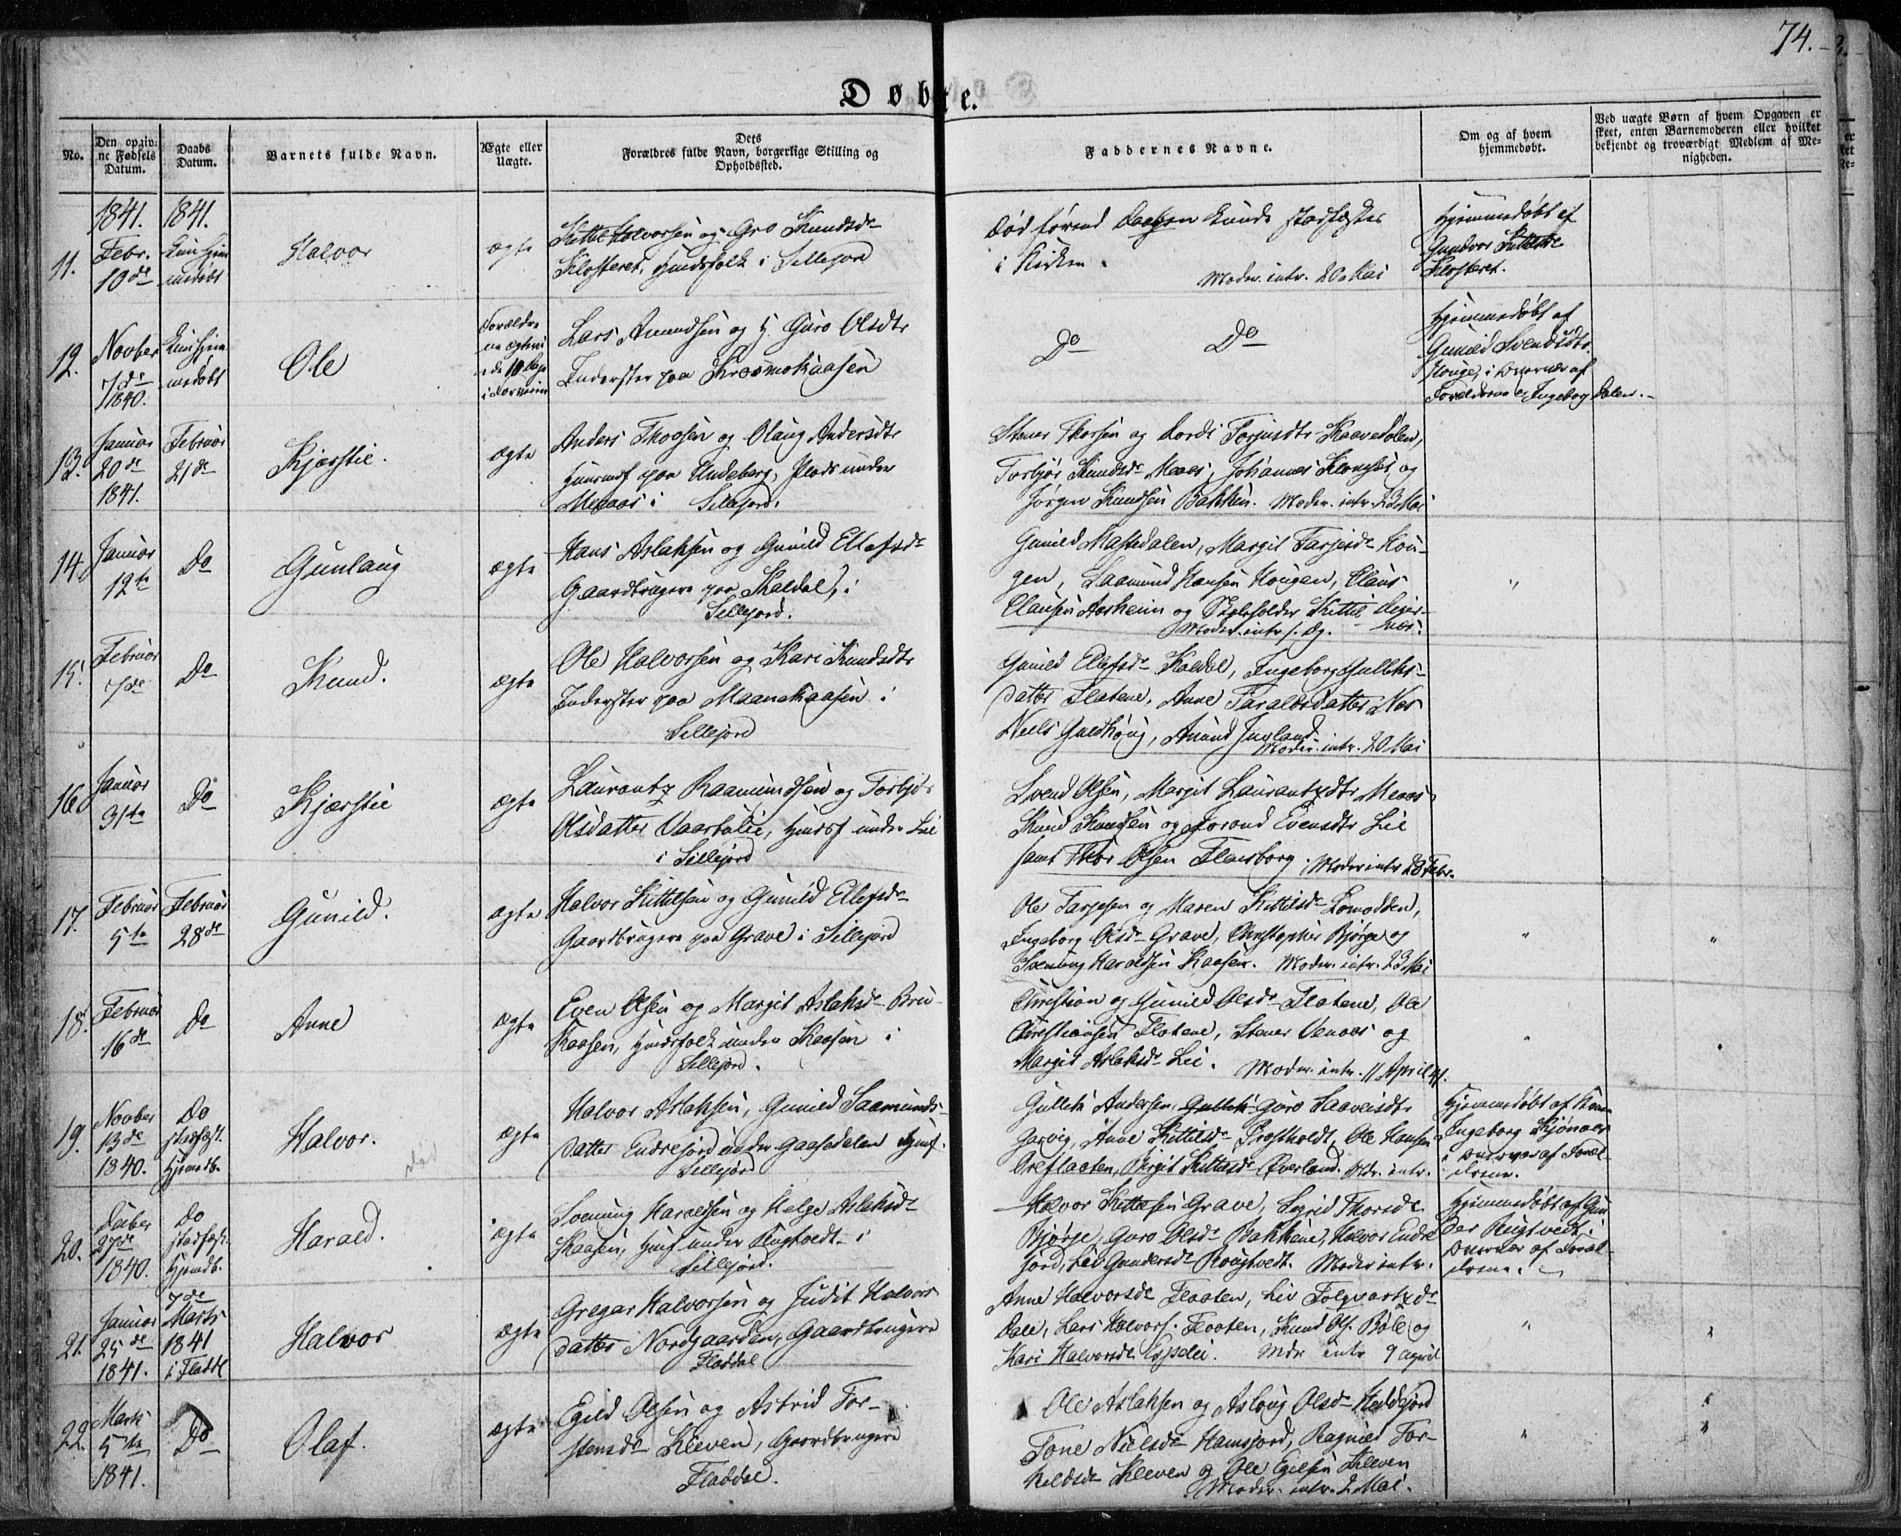 74.
Døbte.
No.
Den opgiv-
ne Fødsels
Datum.
Daabs
Datum.
Barnets fulde Navn.
Ægte eller
Uægte.
Dets
Forældres fulde Navn, borgerlige Stilling og
Opholdssted.
Faddernes Navne.
Om og af hvem
hjemmedøbt.
Ved uægte Børn af hvem Opgaven er
skeet, enten Barnemoderen eller hvilket
bekjendt og troværdigt Medlem af Me-
nigheden.
11.
1841.
Febr.
10de
1841.
Kun hjem
medøbt
Halvor
ægte
Kittil Halvorsen og Gro Knudsdr
Klosteret, Huusfolk i Sillejord
Død førend Daaben kunde stadfæstes
i Kirken.
Moder. intr. 20 Mai
Hjemmedøbt af
Gundvor Kittilsdr
Klosteret.
12.
Novber
7de
1840.
Kun hjem
medøbt
Ole
Forældre
ne ægtevi
Lars Amundsen og H. Guro Olsdtr
Inderster paa
Do
Do
Hjemmedøbt af
Gunild Svendsdtr
Houge, i Overvær af
Forældrene og Ingeborg Dalen.
13.
Januar
20de
1841.
Februar
21de
Kjærstie.
ægte
Anders Thoresen og Olaug Andersdtr
Huusmf paa Undeberg, Plads under
i Sillejord.
Torbjør Knudsdr Moen, Johannes
Jørgen Knudsen Bakken. Moder. intr. 23 Mai
14.
Januar
12te
Do
Gunlaug
ægte
Hans Aslaksen og Gunild Ellefsdr
Gaardbrugere paa Kaldal, i
Sillejord.
Gunild Mastedalen, Margit Tarjeisdr Hou-
gen, Saamund Hansen Hougen, Claus
Clausen Aasheim og Kittil
Moder. intr. s. Dg.
"
15.
Februar
7de
Do
Knud.
ægte
Ole Halvorsen og Kari Knudsdtr
Inderster paa Maanekaasen i
Sillejord
Gunild Ellefsdr Kaldal, Ingeborg Gulleks-
datter Flatene, Anne Taraldsdatter Nes
Niels Amund
Moder. intr. 20 Mai
16.
Januar
31te
Do
Kjærstie
ægte
Laurantz Raamundsen og Torbjør
Olsdatter Vaartalie, Huusf under Lie
i Sillejord
Svend Olsen, Margit Laurantzdtr Moen
Knud Knudsen og Jorond Evensdtr Lie
samt Thor Olsen Flaarborg. Moder intr. 28 Febr.
17.
Februar
5te
Februar
28de
Gunild.
ægte
Halvor Kittilsen og Gunild Ellefsdr
Gaardbrugere paa Grave i Sillejord
Ole Tarjesen og Maren Kittilsdr Lomodden,
Ingeborg Olsdr Grave, Christopher Bjørge og
Svenung Haroldsen Kaasen. Moder. intr. 23 Mai
"
"
18.
Februar
16de
Do
Anne
ægte
Even Olsen og Margit Aslaksdr Bru-
Kaasen, Huusfolk under Kaasen i
Sillejord.
Christian og Gunild Olsdr Flatene, Ole
Christiansen Flatene, Stener Venaas og
Margit Aslaksdr Lie. Moder. intr. 11 April 41.
"
19.
Novber
13de
1840.
Do
stadfæst.
Hjemdb.
Halvor.
død
ægte
Halvor Aslaksen, Gunild Saamunds-
datter Endrejord under Gaasedalen Huusf.
Sillejord
Gullek Andersen, Guro Saaveisdtr
Garvig, Anne Kittilsdr Prestholdt, Ole Hansen
Grefstaaten, Birgit Kittilsdr Øverland. Mdr. intr.
Hjemmedøbt af
Ingeborg
i Overvær af Foræl-
drene.
20.
Decber
27de
1840.
Do
stadfæst.
Hjemdb.
Harald.
ægte
Svenung Haroldsen og Helge Aslaksdr
Kaasen, Huusf under Rugtvedt i
Sillejord.
Halvor Kittilsen Grave, Sigrid Thorsdr
Bjørge, Guro Olsdr Bakkene, Halvor Endre
jord, Liv Gundersdr Rougtvedt. Moder intr.
Hjemmedøbt af Gun
der Rugtvedt i
Overvær af Foræl-
drene.
21.
Januar
25de
1841.
7de
Marts
1841
i Fladdl
Halvor
ægte
Gregar Halvorsen og Judit Halvors
datter Nordgaarden, Gaardbrugere
Fladdal
Anne Halvorsdr Flaaten, Liv Folqvartzdr
Dale, Lars Halvors. Flaaten, Knud Ols. Bøle og
Kari Halvorsdr Espelie. Mdr intr 9 April
"
"
22.
Marts
5te
1841.
Do
Olaf.
ægte
Egild Olsen og Astrid Tor-
stensdr Kleven, Gaardbrugere
Fladdal.
Ole Aslaksen og Aslaug Olsdr Heddejord
Tone Nielsdr Hamsjord, Ragnild Tor-
kildsdr Kleven og Ole Egilsen Kleven
Moder. intr. 2 Mai.
"
"